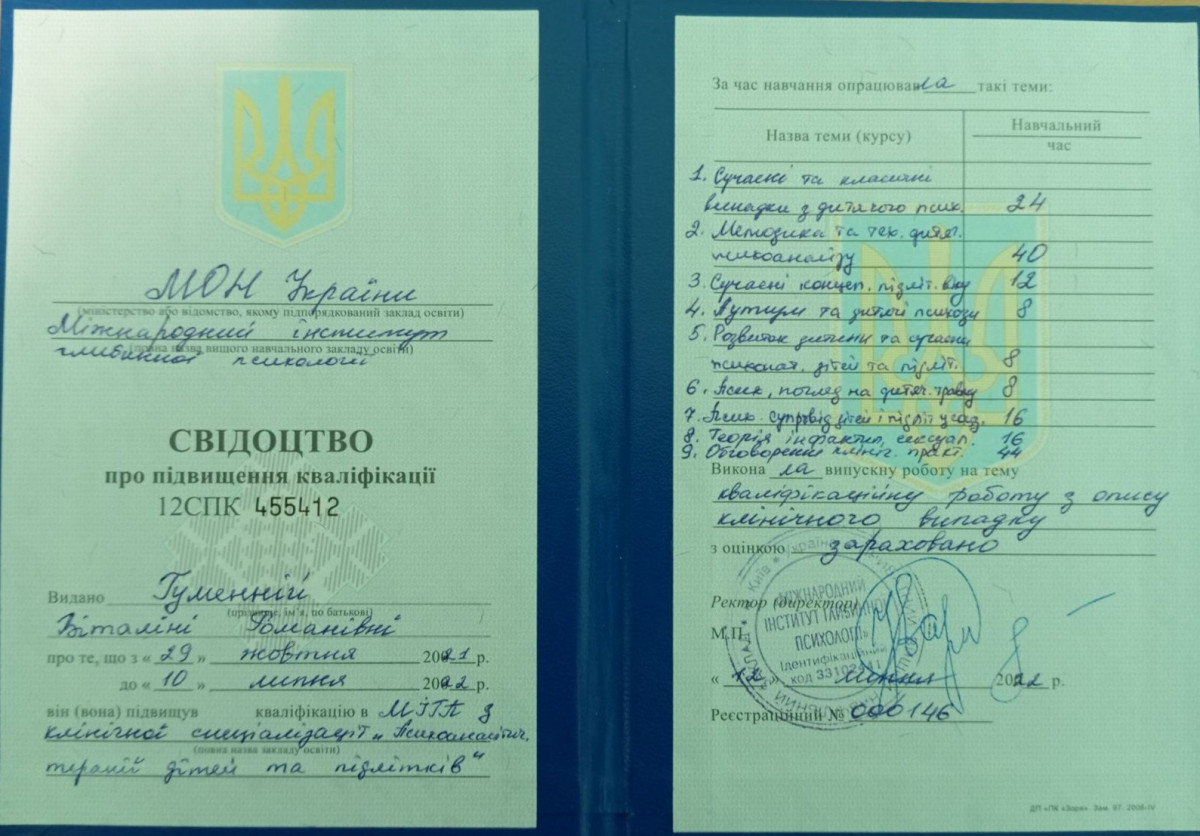 МОН України
(міністерство або відомство, якому підпорядкований заклад освіти)
Міжнародний інститут
(повна назва вищого навчального закладу освіти)
глибинної психології
СВІДОЦТВО
про підвищення кваліфікації
12СПК 455412
Видано Гуменній
(прізвище, ім'я, по батькові)
Віталіні Романівні
про те, що з « 29 » жовтня 2021 р.
до « 10 » липня 2022 р.
він (вона) підвищув кваліфікацію в МІГП з
клінічної спеціалізації „Психоаналітич.
(повна назва закладу освіти)
терапії дітей та підлітків"
За час навчання опрацювала такі теми:
Назва теми (курсу)
Навчальний
час
1. Сучасні та класичні
випадки з дитячого псик. 24
2. Методика та тех. дитяч.
психоаналізу 40
3. Сучасні концеп. підліт. віку 12
4. Аутизм та дитячі психози 8
5. Розвиток дитини та сучасни
психопат. дітей та підліт. 8
6. Псих. погляд на дитяч. травму 8
7. Псих. супровід дітей і підліт. 16
8. Теорія інфантил. сексуал. 16
9. Обговорення клініч. практ. 44
Викона ла випускну роботу на тему
кваліфікаційну роботу з опису
клінічного випадку
з оцінкою зараховано
Ректор (директор)
М.П.
Київ • Україна
МІЖНАРОДНИЙ
ІНСТИТУТ ГЛИБИННОЇ
ПСИХОЛОГІЇ»
Ідентифікаційний
код 33102411
« 12 » липня 2022 р.
Реєстраційний № 000146
ДП «ПК «Зоря». Зам. 97. 2006-IV